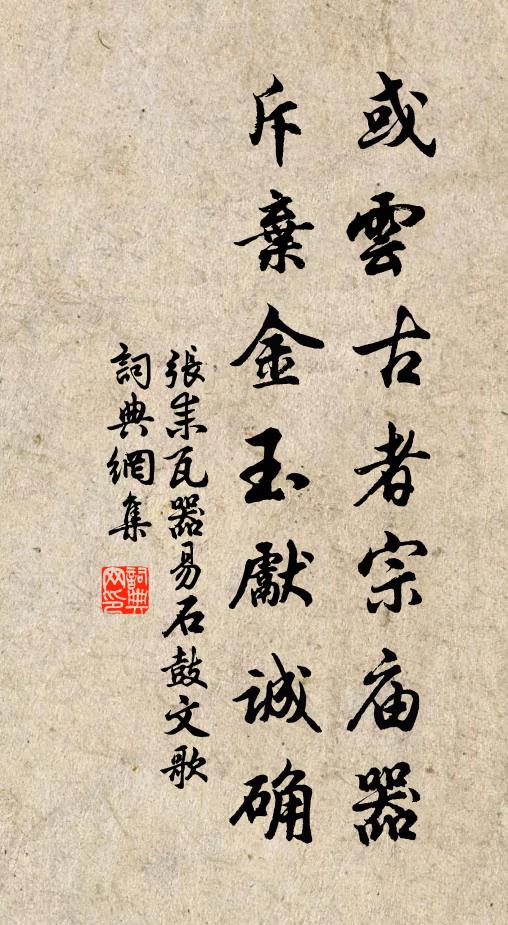 或雲古者宗庙器
斥棄金玉獻誠确
張耒瓦器易石鼓文歌
詞典網集
詞典網印